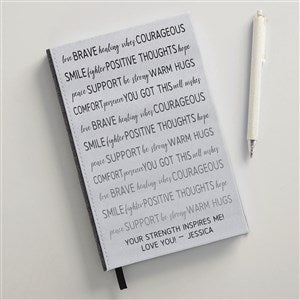 love BRAVE healing vibes COURAGEOUS
SMILE fighter POSITIVE THOUGHTS hope
peace SUPPORT be strong WARM HUGS
COMFORT perseverer YOU GOT THIS well wishes
love BRAVE healing vibes COURAGEOUS
SMILE fighter POSITIVE THOUGHTS hope
peace SUPPORT be strong WARM HUGS
COMFORT perseverer YOU GOT THIS well wishes
love BRAVE healing vibes COURAGEOUS
SMILE fighter POSITIVE THOUGHTS hope
peace SUPPORT be strong WARM HUGS
YOUR STRENGTH INSPIRES ME!
LOVE YOU! ~ JESSICA